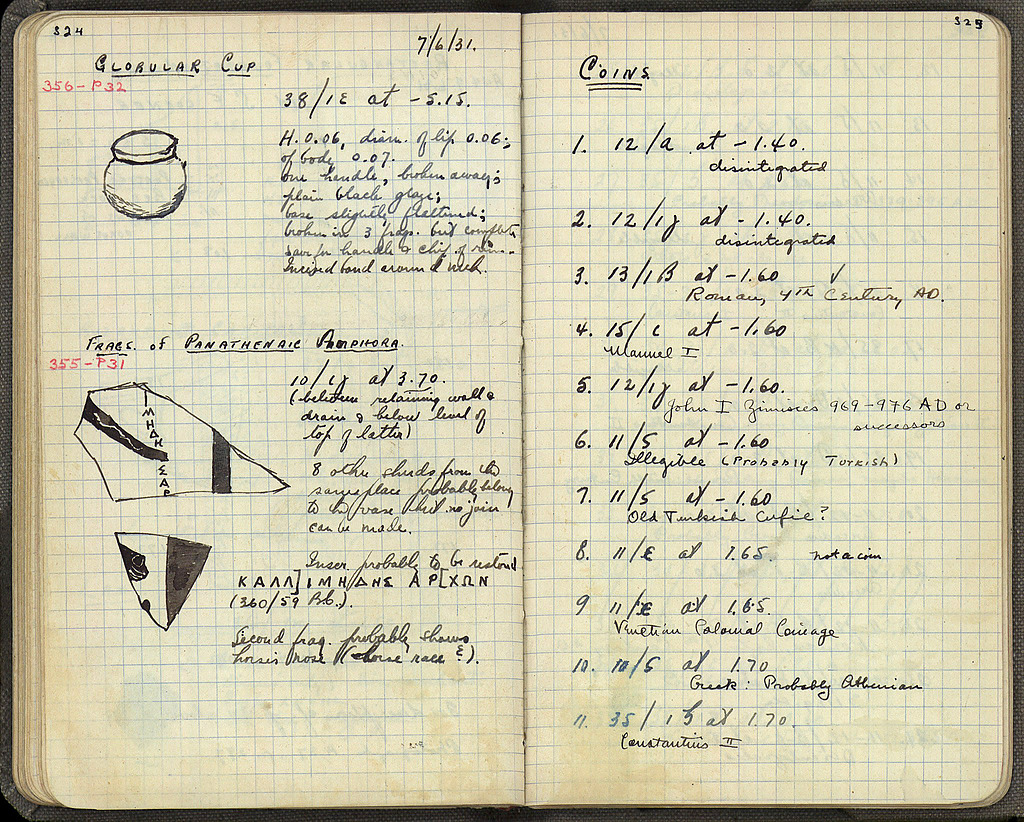 324
7/6/31.
GLOBULAR CUP
356-P32
38/ΙΕ at -5.15.
H. 0.06, diam. of lip 0.06;
of body 0.07.
one handle, broken away;
plain black glaze;
base slightly flattened;
broken in 3 frags. but complete
save for handle & chip of rim.
Incised band around neck.
FRAGS. of PANATHENAIC AMPHORA.
355-P31
10/ at 3.70.
(between retaining wall &
drain & below level of
top of latter)
ΙΜΗΔΗΣ ΑΡ
8 other sherds from the
same place probably belong
to the vase but no join
can be made.
Inscr. probably to be restored
ΚΑΛΛ]ΙΜΗΔΗΣ ΑΡ[ΧΩΝ
(360/59 B.C.).
Second frag. probably shows
horse's nose (horse race?).
325
COINS
1. 12/a at -1.40.
disintegrated
2. 12/ at -1.40.
disintegrated
3. 13/ΙΒ at -1.60 ✓
Roman, 4th Century AD.
4. 15/ at -1.60
Manuel I
5. 12/ at -1.60.
John I Zimisces 969-976 AD or
successors
6. 11/ at -1.60
Illegible (Probably Turkish)
7. 11/ at -1.60
Old Turkish Cufic?
8. 11/Ε at 1.65. not a coin
9 11/ at 1.65.
Venetian Colonial Coinage
10. 10/ at 1.70
Greek: Probably Athenian
11. 35/ at 1.70.
Constantius II